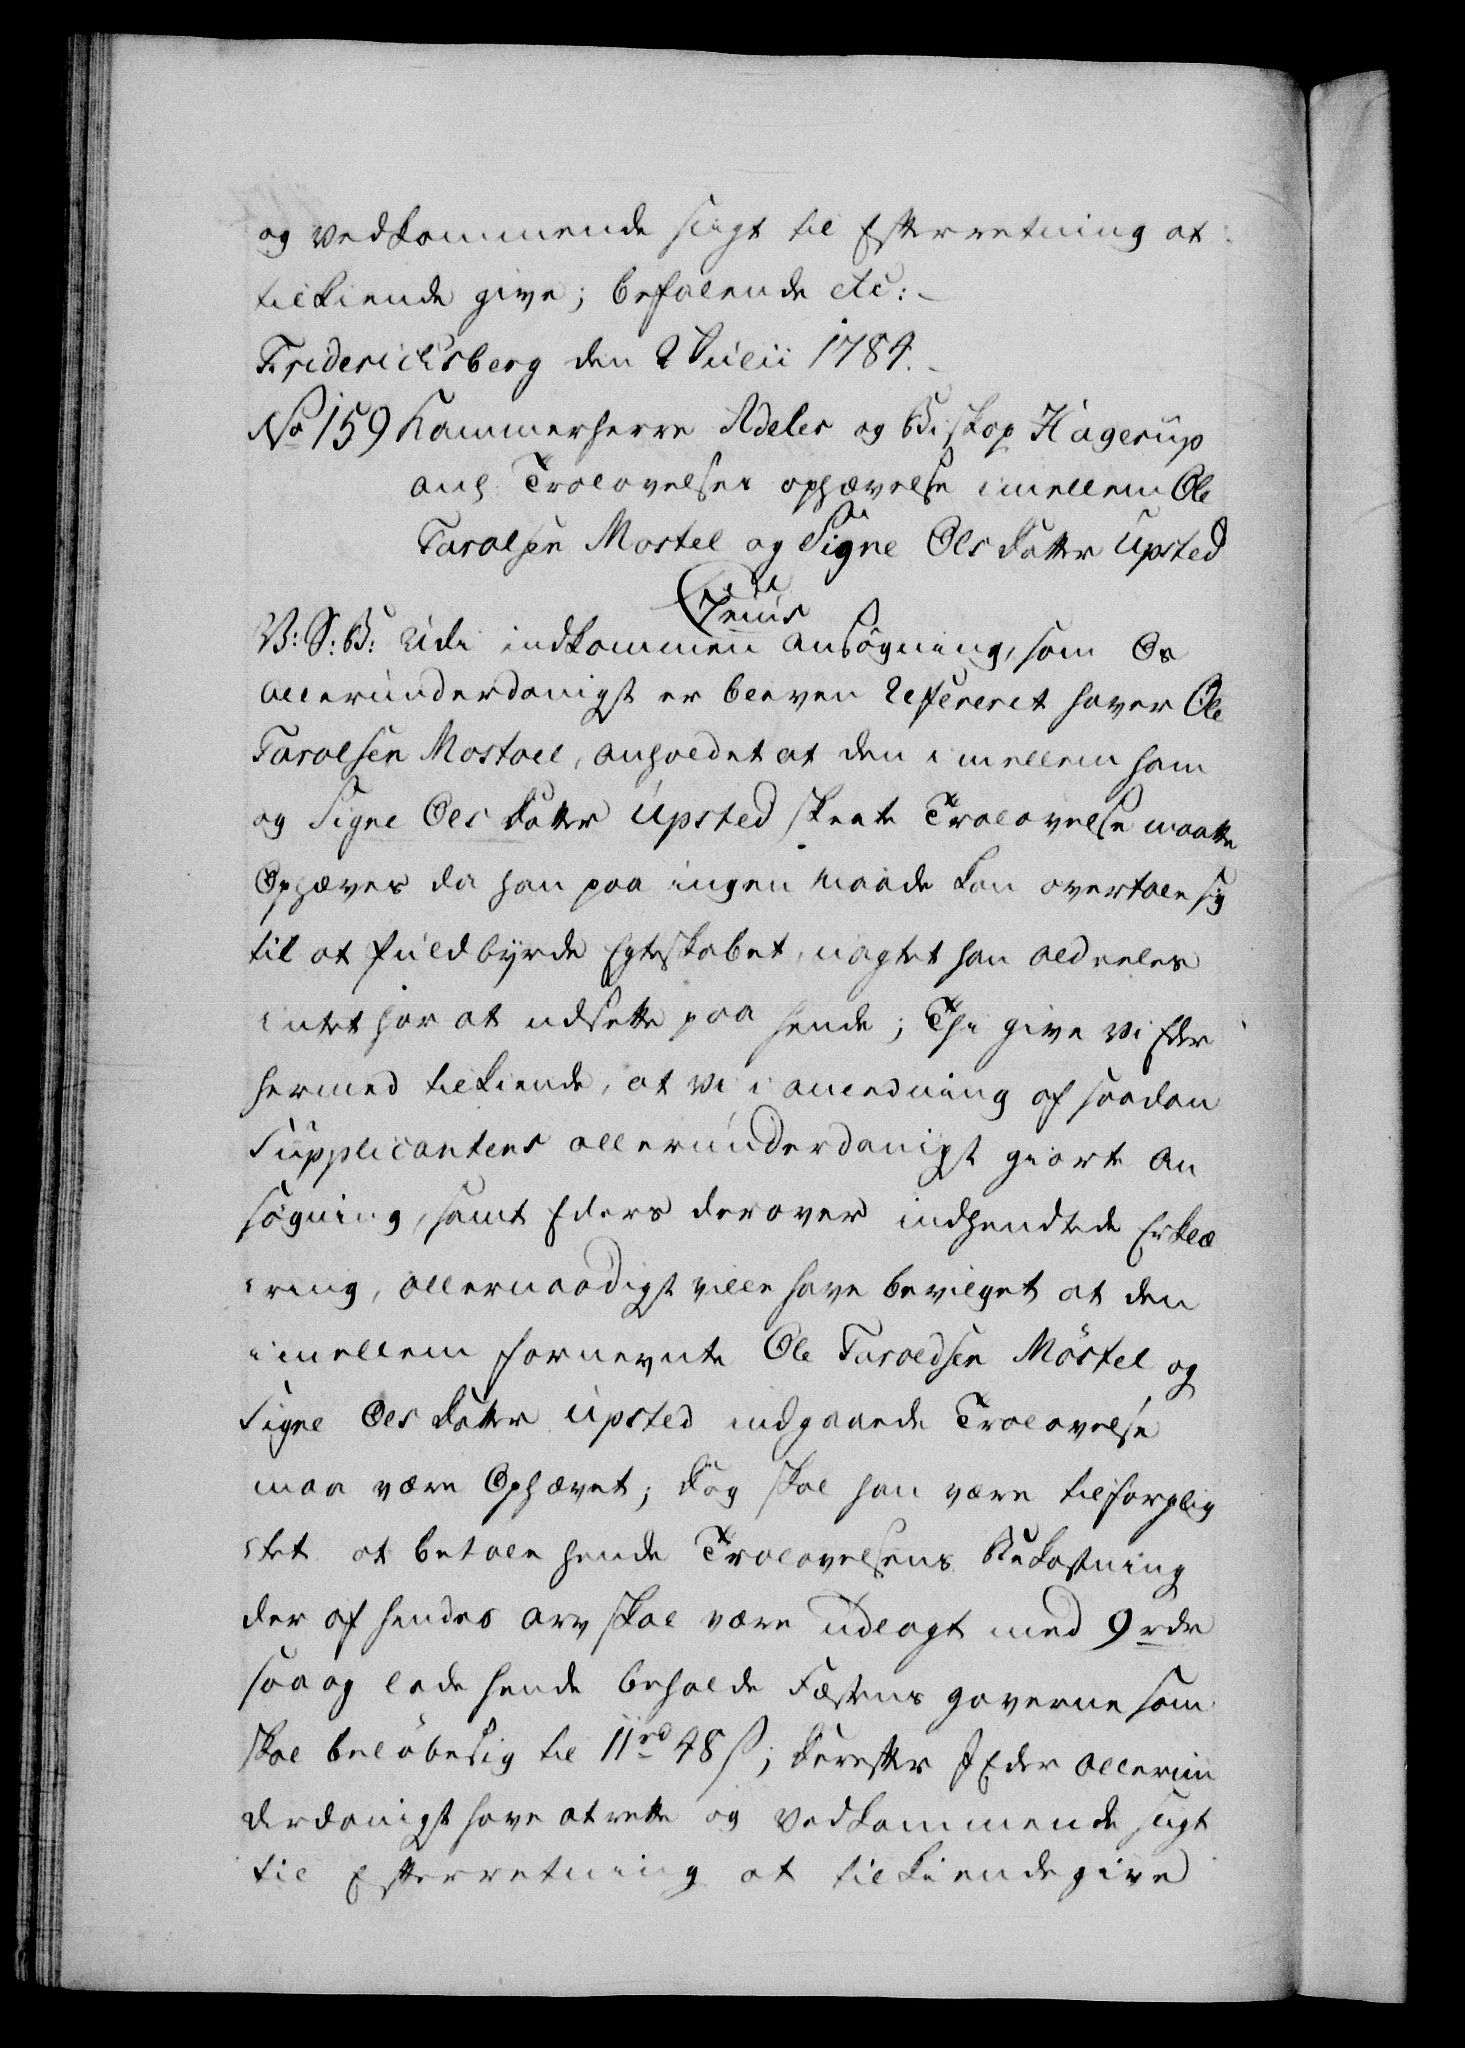 og vedkommende sligt til Efterretning at
tilkiende give; befalende etc:
Fridericksberg den 2 Julii 1784.
No 159 Kammerherre Adeler og Biskop Hagerup
anl Trolovelses ophævelse imellem Ole
Taralsen Mostel og Signe Olsdatter Upsted
V: S: G: Udi indkommen Ansøgning, som Os
allerunderdanigst er bleven Refereret haver Ole
Taralsen Mostael, anholdet at den imellem ham
og Signe Olsdatter Upsted skeete Trolovelse maatte
Ophæves da han paa ingen maade kan overtale sig
til at fuldbyrde Egteskabet, uagtet han aldeeles
intet har at udsette paa hende; Thi give vi Eder
hermed tilkiende, at vi i anledning af saadan
Supplicantens allerunderdanigst giorte An
søgning, samt Eders derover indhendtede Erklæ
ring, allernaadigst ville have bevilget at den
imellem fornevnte Ole Taraldsen Møstel og
Signe Olsdatter Upsted indgaaede Trolovelse
maa være Ophævet; dog skal han være tilforplig
tet at betale hende Trolovelsens Bekostning
der af hendes Arv skal være udlagt med 9 rdr
saa og lade hende beholde Fæstens gaverne som
skal beløbe sig til 11 rd 48 ß; Derefter I Eder allerun
derdanigst have at rette og vedkommende sligt
til Efterretning at tilkiendegive